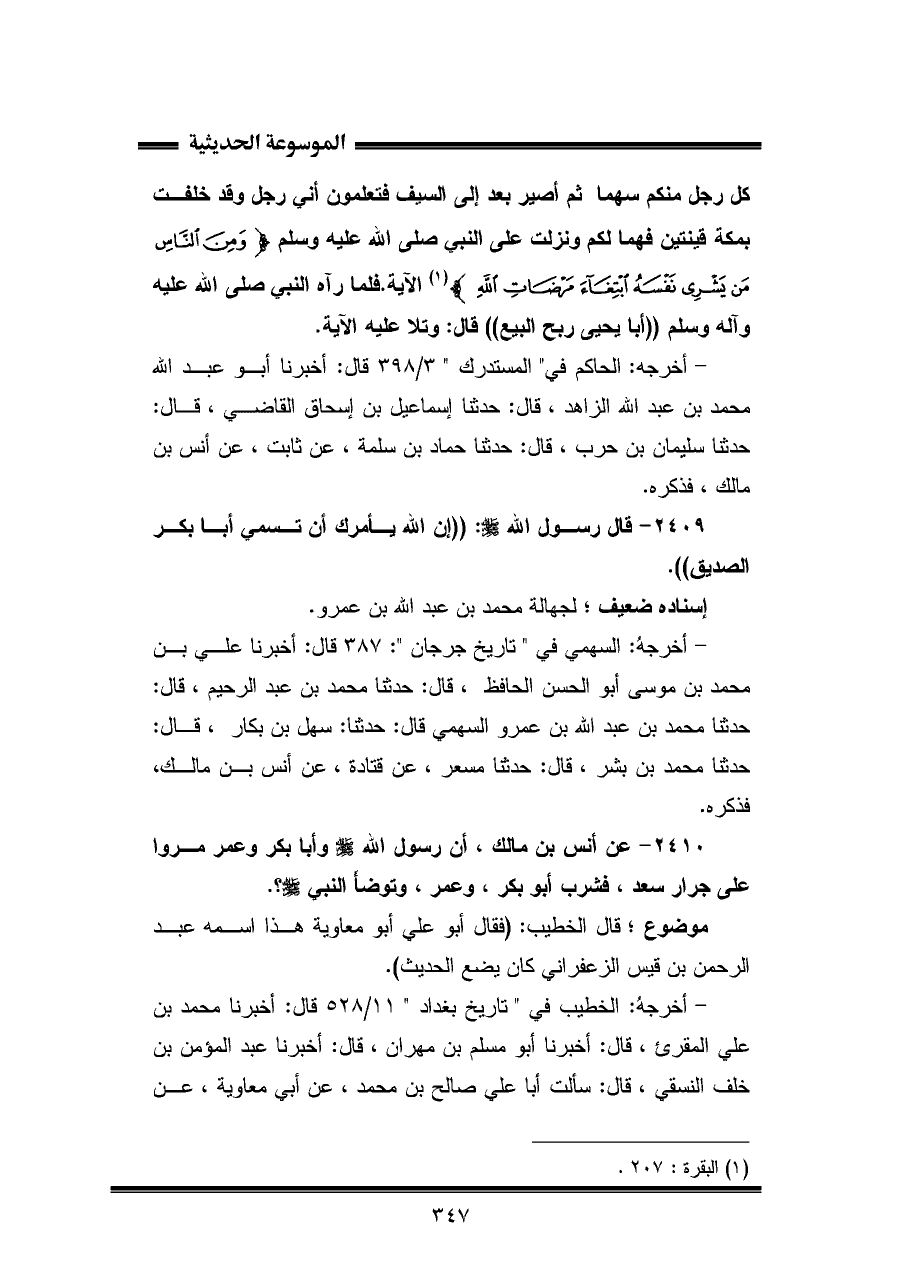 الموسوعة الحديثية
كل رجل منكم سهما ثم أصير بعد إلى السيف فتعلمون أني رجل وقد خلفت
بمكة قينتين فهما لكم ونزلت على النبي صلى الله عليه وسلم ﴿ وَمِنَ ٱلنَّاسِ
مَن يَشْرِى نَفْسَهُ ٱبْتِغَآءَ مَرْضَاتِ ٱللَّهِ ﴾(١) الآية.فلما رآه النبي صلى الله عليه
وآله وسلم ((أبا يحيى ربح البيع)) قال: وتلا عليه الآية.
- أخرجه: الحاكم في" المستدرك " ٣٩٨/٣ قال: أخبرنا أبو عبد الله
محمد بن عبد الله الزاهد ، قال: حدثنا إسماعيل بن إسحاق القاضي ، قال:
حدثنا سليمان بن حرب ، قال: حدثنا حماد بن سلمة ، عن ثابت ، عن أنس بن
مالك ، فذكره.
٢٤٠٩- قال رسول الله ﷺ: ((إن الله يأمرك أن تسمي أبا بكر
الصديق)).
إسناده ضعيف ؛ لجهالة محمد بن عبد الله بن عمرو.
- أخرجهُ: السهمي في " تاريخ جرجان ": ٣٨٧ قال: أخبرنا علي بن
محمد بن موسى أبو الحسن الحافظ ، قال: حدثنا محمد بن عبد الرحيم ، قال:
حدثنا محمد بن عبد الله بن عمرو السهمي قال: حدثنا: سهل بن بكار ، قال:
حدثنا محمد بن بشر ، قال: حدثنا مسعر ، عن قتادة ، عن أنس بن مالك،
فذكره.
٢٤١٠- عن أنس بن مالك ، أن رسول الله ﷺ وأبا بكر وعمر مروا
على جرار سعد ، فشرب أبو بكر ، وعمر ، وتوضأ النبي ﷺ؟.
موضوع ؛ قال الخطيب: (فقال أبو علي أبو معاوية هذا اسمه عبد
الرحمن بن قيس الزعفراني كان يضع الحديث).
- أخرجهُ: الخطيب في " تاريخ بغداد " ٥٢٨/١١ قال: أخبرنا محمد بن
علي المقرئ ، قال: أخبرنا أبو مسلم بن مهران ، قال: أخبرنا عبد المؤمن بن
خلف النسقي ، قال: سألت أبا علي صالح بن محمد ، عن أبي معاوية ، عن
(١) البقرة : ٢٠٧ .
٣٤٧